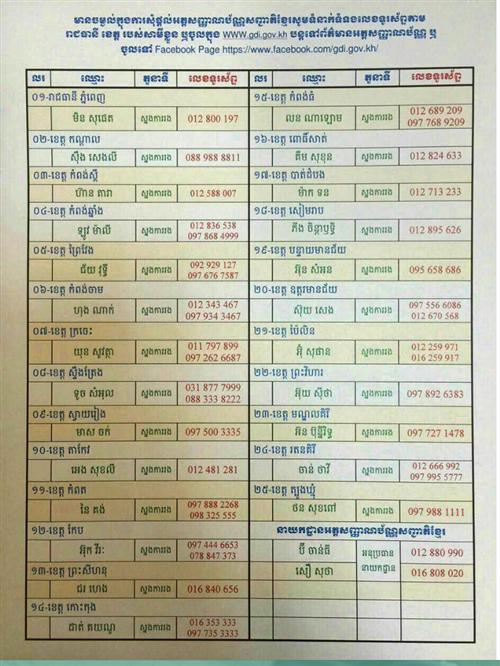 មានចម្ងល់ក្នុងការសុំផ្តល់អត្តសញ្ញាណប័ណ្ណសញ្ជាតិខ្មែរសូមទំនាក់ទំនងលេខទូរស័ព្ទតាម
រាជធានី ខេត្ត របស់សាមីខ្លួន ឬចូលក្នុង www.gdi.gov.kh បន្តទៅព័ត៌មានអត្តសញ្ញាណប័ណ្ណ ឬ
ចូលទៅ Facebook Page https://www.facebook.com/gdi.gov.kh/
លរ ឈ្មោះ តួនាទី លេខទូរស័ព្ទ
០១-រាជធានី ភ្នំពេញ
មិន សុផេត ស្នងការរង 012 800 197
០២-ខេត្ត កណ្តាល
ស៊ឹង សេងលី ស្នងការរង 088 988 8811
០៣-ខេត្ត កំពង់ស្ពឺ
ហ៊ាន តារា ស្នងការរង 012 588 007
០៤-ខេត្ត កំពង់ឆ្នាំង
ឡូវ ម៉ាលី ស្នងការរង 012 836 538
097 868 4999
០៥-ខេត្ត ព្រៃវែង
ជ័យ វុទ្ធី ស្នងការរង 092 929 127
097 676 7587
០៦-ខេត្ត កំពង់ចាម
ហុង ណាក់ ស្នងការរង 012 343 467
097 934 3467
០៧-ខេត្ត ក្រចេះ
យុន សុវត្ថា ស្នងការរង 011 797 899
097 262 6687
០៨-ខេត្ត ស្ទឹងត្រែង
ទូច សំអុល ស្នងការរង 031 877 7999
088 333 8222
០៩-ខេត្ត ស្វាយរៀង
មាស ចក់ ស្នងការរង 097 500 3335
១០-ខេត្ត តាកែវ
អេង សុខលី ស្នងការរង 012 481 281
១១-ខេត្ត កំពត
នៃ គង់ ស្នងការរង 097 888 2268
098 325 555
១២-ខេត្ត កែប
អ៊ុក វីរៈ ស្នងការរង 097 444 6653
078 847 373
១៣-ខេត្ត ព្រះសីហនុ
ជរ ហេង ស្នងការរង 016 840 656
១៤-ខេត្ត កោះកុង
ដាត់ គយណូ ស្នងការរង 016 353 333
097 735 3333
លរ ឈ្មោះ តួនាទី លេខទូរស័ព្ទ
១៥-ខេត្ត កំពង់ធំ
លន ណាឡោម ស្នងការរង 012 689 209
097 768 9209
១៦-ខេត្ត ពោធិ៍សាត់
គឹម សុខុន ស្នងការរង 012 824 633
១៧-ខេត្ត បាត់ដំបង
ម៉ាក ទន ស្នងការរង 012 713 233
១៨-ខេត្ត សៀមរាប
ភឹង ចិន្តាឫទ្ធិ ស្នងការរង 012 895 626
១៩-ខេត្ត បន្ទាយមានជ័យ
អ៊ុន សំអន ស្នងការរង 095 658 686
២០-ខេត្ត ឧត្តរមានជ័យ
ស៊ុយ សេង ស្នងការរង 097 556 6086
012 670 568
២១-ខេត្ត ប៉ៃលិន
អ៊ុំ សុផាន ស្នងការរង 012 259 971
016 259 917
២២-ខេត្ត ព្រះវិហារ
អ៊ុយ ស៊ីថា ស្នងការរង 097 892 6383
២៣-ខេត្ត មណ្ឌលគិរី
អ៊ន ប៊ុន្នីរិទ្ធ ស្នងការរង 097 727 1478
២៤-ខេត្ត រតនគិរី
ចាន់ ថាវី ស្នងការរង 012 666 992
097 995 5777
២៥-ខេត្ត ត្បូងឃ្មុំ
ថន សុខពៅ ស្នងការរង 097 988 1111
នាយកដ្ឋានអត្តសញ្ញាណប័ណ្ណសញ្ជាតិខ្មែរ
ប៊ី ចាន់ធី អនុប្រធាន 012 880 990
សឿ សុថា នាយកដ្ឋាន 016 808 020